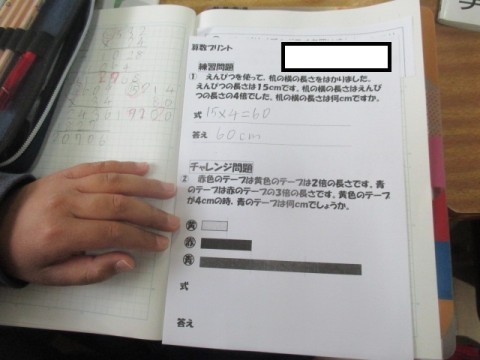 算数プリント
練習問題
① えんぴつを使って、机の横の長さをはかりました。
えんぴつの長さは15cmです。机の横の長さはえんぴ
つの長さの4倍でした。机の横の長さは何cmですか。
式 15×4=60
答え 60cm
チャレンジ問題
② 赤色のテープは黄色のテープは2倍の長さです。青
のテープは赤のテープの3倍の長さです。黄色のテープ
が4cmの時、青のテープは何cmでしょうか。
黄
赤
青
式
答え